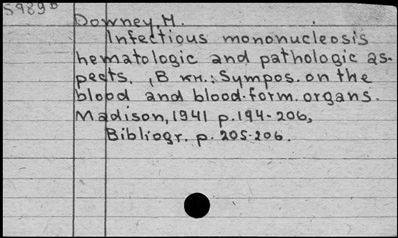 5989D
Downey, M.
Infectious mononucleosis
hematologic and pathologic as-
pects. , В кн.: Sympos. on the
blood and blood-form. organs.
Madison, 1941 p. 194-206,
Bibliogr. p. 205-206.